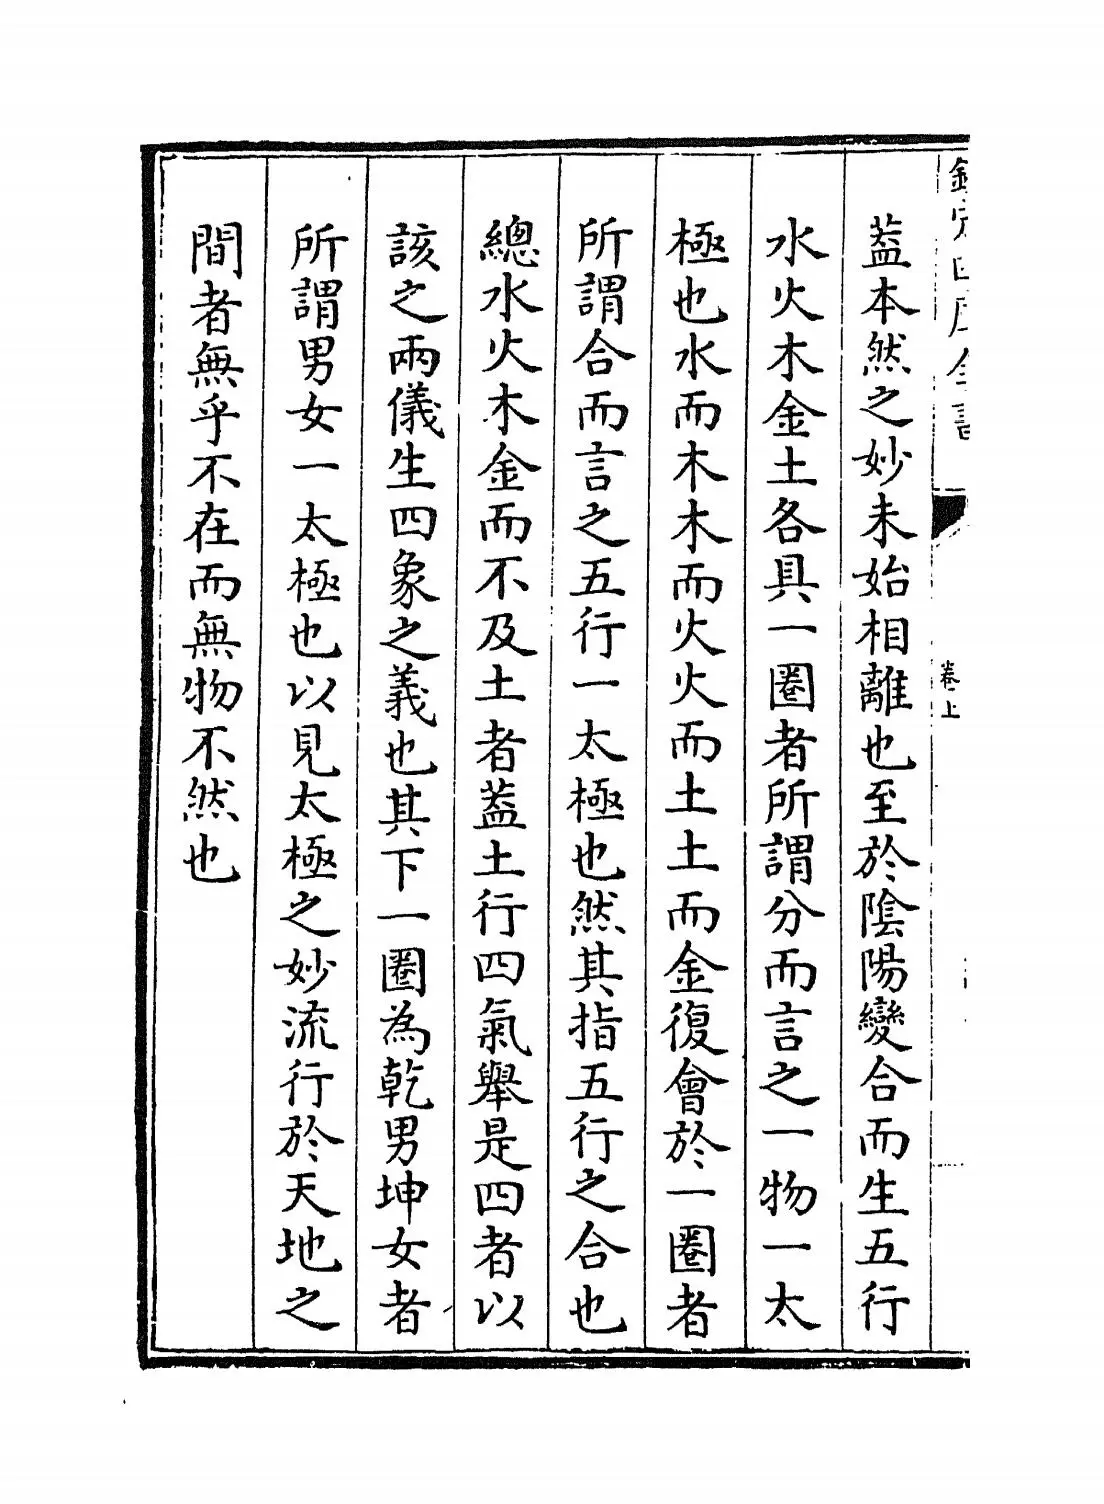 欽定四庫全書
卷上
葢本然之妙未始相離也至於陰陽變合而生五行
水火木金土各具一圈者所謂分而言之一物一太
極也水而木木而火火而土土而金復會於一圈者
所謂合而言之五行一太極也然其指五行之合也
總水火木金而不及土者葢土行四氣舉是四者以
該之兩儀生四象之義也其下一圈為乾男坤女者
所謂男女一太極也以見太極之妙流行於天地之
間者無乎不在而無物不然也